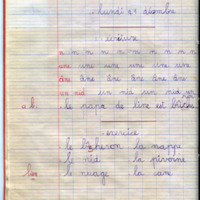 lundi 27 décembre
écriture
n n n n n n n n n
une une une une une une
Âne âne âne âne âne âne
un nid un nid un nid un
a b. le papa de line est
exercice
le bûcheron la nappe
le nid la pivoine
le nuage la cane